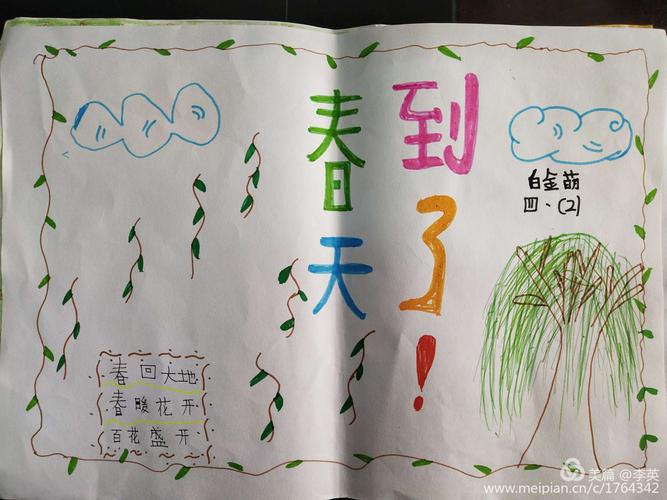 春天
到了!
白金萌
四、(2)
春回大地
春暖花开
百花盛开
美篇 @李英
www.meipian.cn/c/1764342